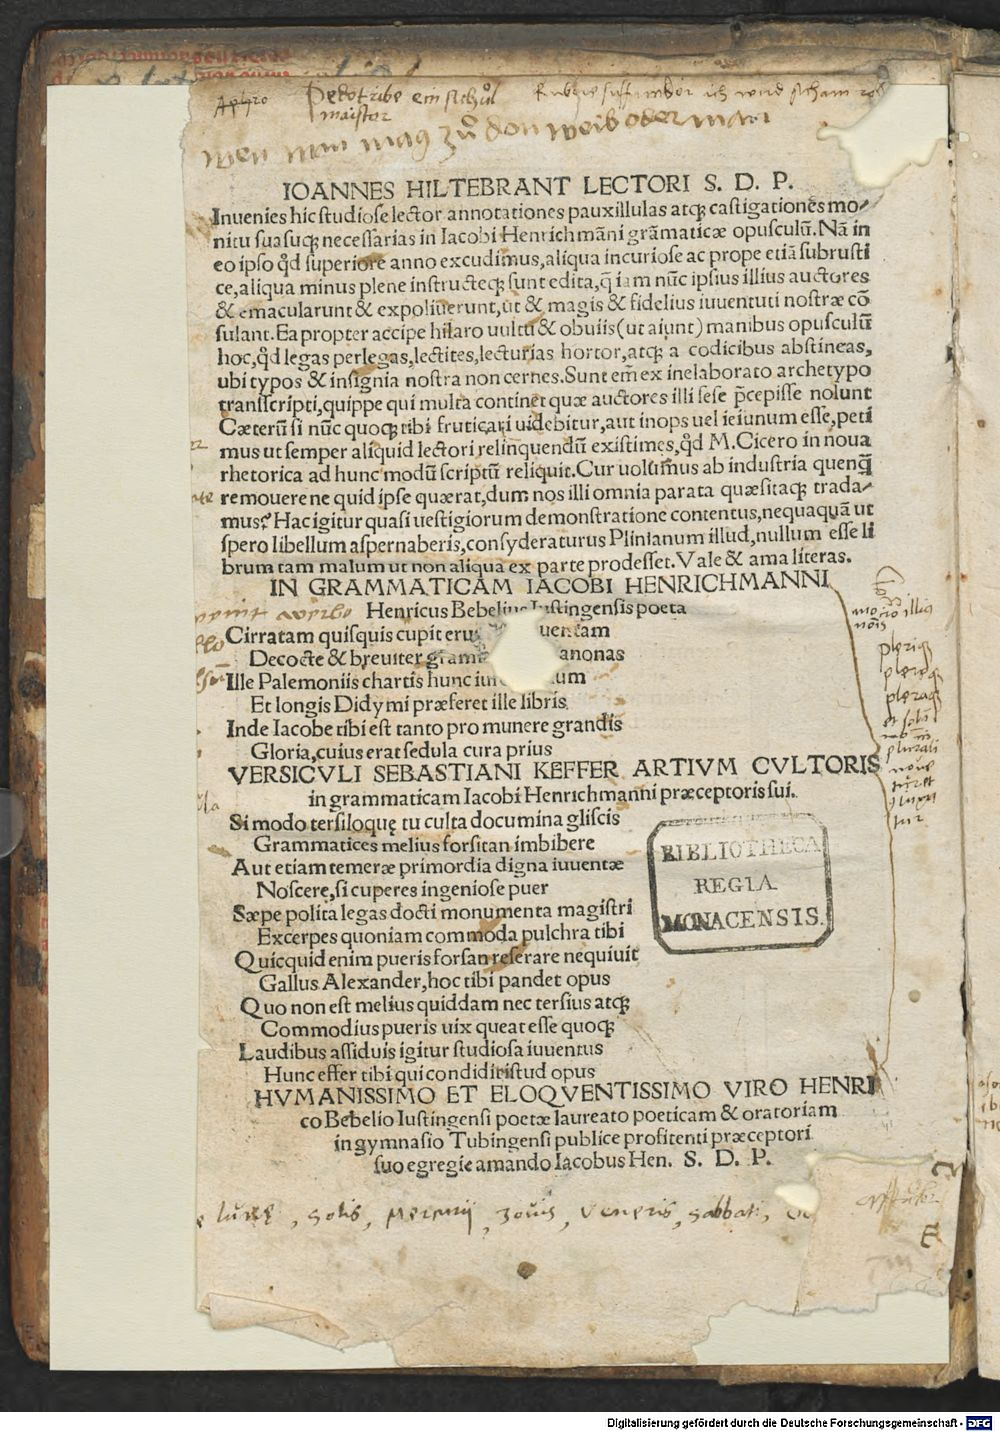 Pedotribe ein schůl
maister
wen man mag zů den weib oder man
IOANNES HILTEBRANT LECTORI S. D. P.
Inuenies hic studiose lector annotationes pauxillulas atq̃ castigationes mo⸗
nitu suasuq̃ necessarias in Iacobi Henrichmãni grãmaticæ opusculũ. Nã in
eo ipso q̃d superiore anno excudimus, aliqua incuriose ac prope etiã subrusti
ce, aliqua minus plene instructeq̃ sunt edita, q̃ iam nũc ipsius illius auctores
& emacularunt & expoliuerunt, ut & magis & fidelius iuuentuti nostræ cõ
sulant. Ea propter accipe hilaro uultu & obuiis (ut aiunt) manibus opusculũ
hoc, q̃d legas perlegas, lectites, lecturias hortor, atq̃ a codicibus abstineas,
ubi typos & insignia nostra non cernes. Sunt em̃ ex inelaborato archetypo
transscripti, quippe qui multa continet quæ auctores illi sese p̃cepisse nolunt
Cæterũ si nũc quoq̃ tibi fruticari uidebitur, aut inops uel ieiunum esse, peti
mus ut semper aliquid lectori relinquendũ existimes, q̃d M. Cicero in noua
rhetorica ad hunc modũ scriptũ reliquit. Cur uolumus ab industria quenq̃
remouere ne quid ipse quærat, dum nos illi omnia parata quæsitaq̃ trada⸗
mus? Hac igitur quasi uestigiorum demonstratione contentus, nequaquã ut
spero libellum aspernaberis, consyderaturus Plinianum illud, nullum esse li
brum tam malum ut non aliqua ex parte prodesset. Vale & ama literas.
IN GRAMMATICAM IACOBI HENRICHMANNI
Henricus Bebelius Iustingensis poeta
Cirratam quisquis cupit uentam
Decocte & breuiter anonas
Ille Palemoniis chartis hunc
Et longis Didymi præferet ille libris
Inde Iacobe tibi est tanto pro munere grandis
Gloria, cuius erat sedula cura prius
VERSICVLI SEBASTIANI KEFFER ARTIVM CVLTORIS
in grammaticam Iacobi Henrichmanni præceptoris sui.
Si modo tersiloquę tu culta documina gliscis
Grammatices melius forsitan imbibere
Aut etiam temeræ primordia digna iuuentæ
Noscere, si cuperes ingeniose puer
Sæpe polita legas docti monumenta magistri
Excerpes quoniam commoda pulchra tibi
Quicquid enim pueris forsan reserare nequiuit
Gallus Alexander, hoc tibi pandet opus
Quo non est melius quiddam nec tersius atq̃
Commodius pueris uix queat esse quoq̃
Laudibus assiduis igitur studiosa iuuentus
Hunc effer tibi qui condidit istud opus
HVMANISSIMO ET ELOQVENTISSIMO VIRO HENRI
co Bebelio Iustingensi poetæ laureato poeticam & oratoriam
in gymnasio Tubingensi publice profitenti præceptori
suo egregie amando Iacobus Hen. S. D. P.
pleriq̃
pleręq̃
pleraq̃
plurali
BIBLIOTHECA
REGIA
MONACENSIS.
lunę, solis, Mercurij, Jouis, Veneris, sabbati,
Digitalisierung gefördert durch die Deutsche Forschungsgemeinschaft - DFG